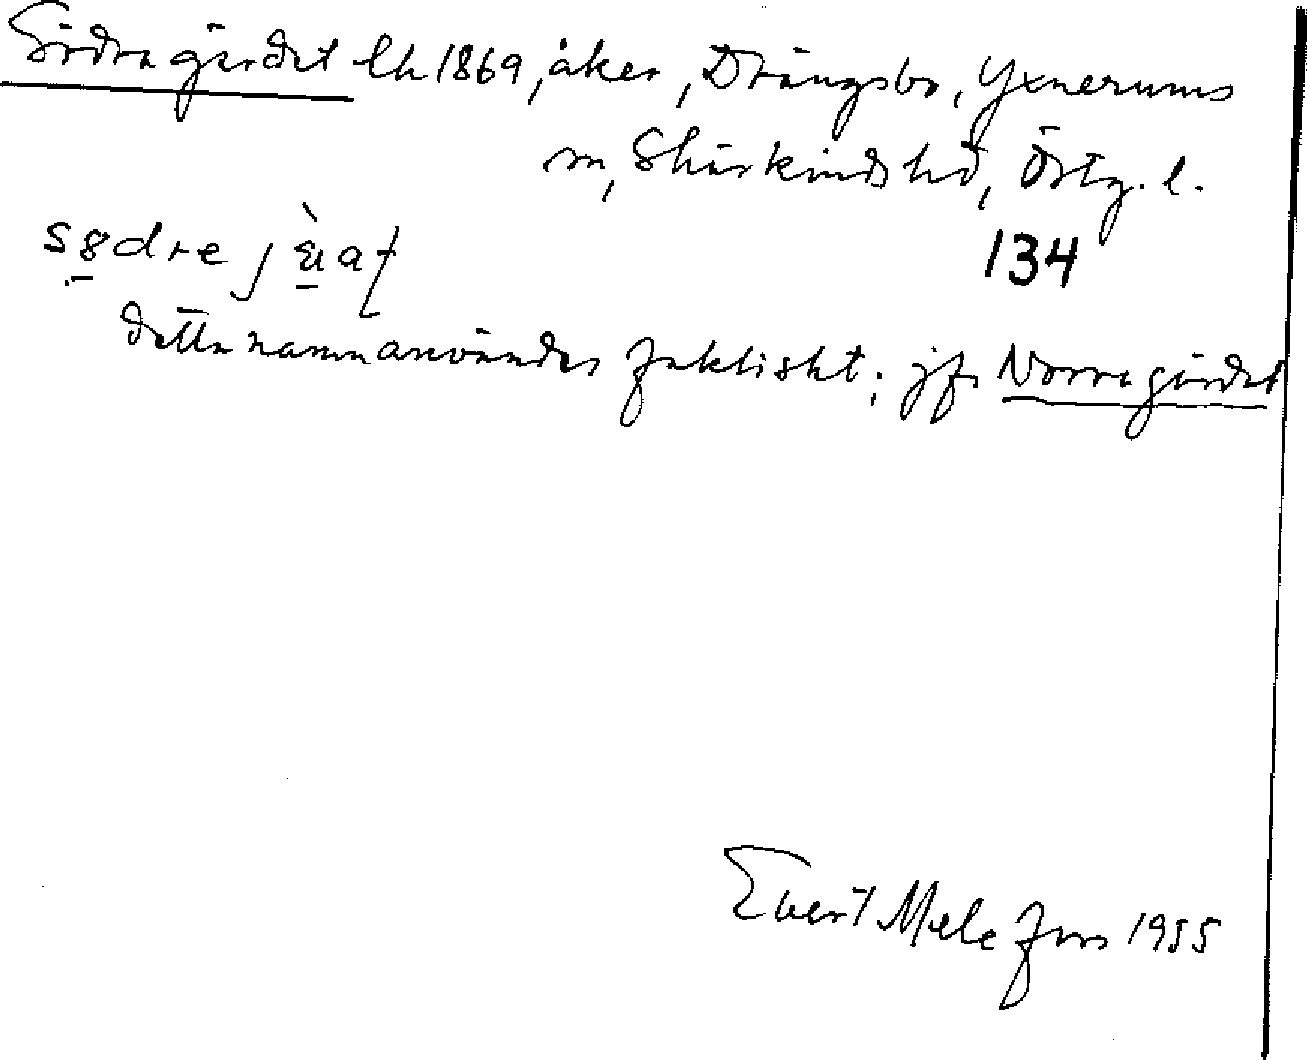 Södra gärdet lh 1869, åker, Drängsbo, Yxnerums
sn, Skärkinds hd, Östg. l.
134
detta namn användes faktiskt; jfr Norra gärdet
Evert Melefors 1955